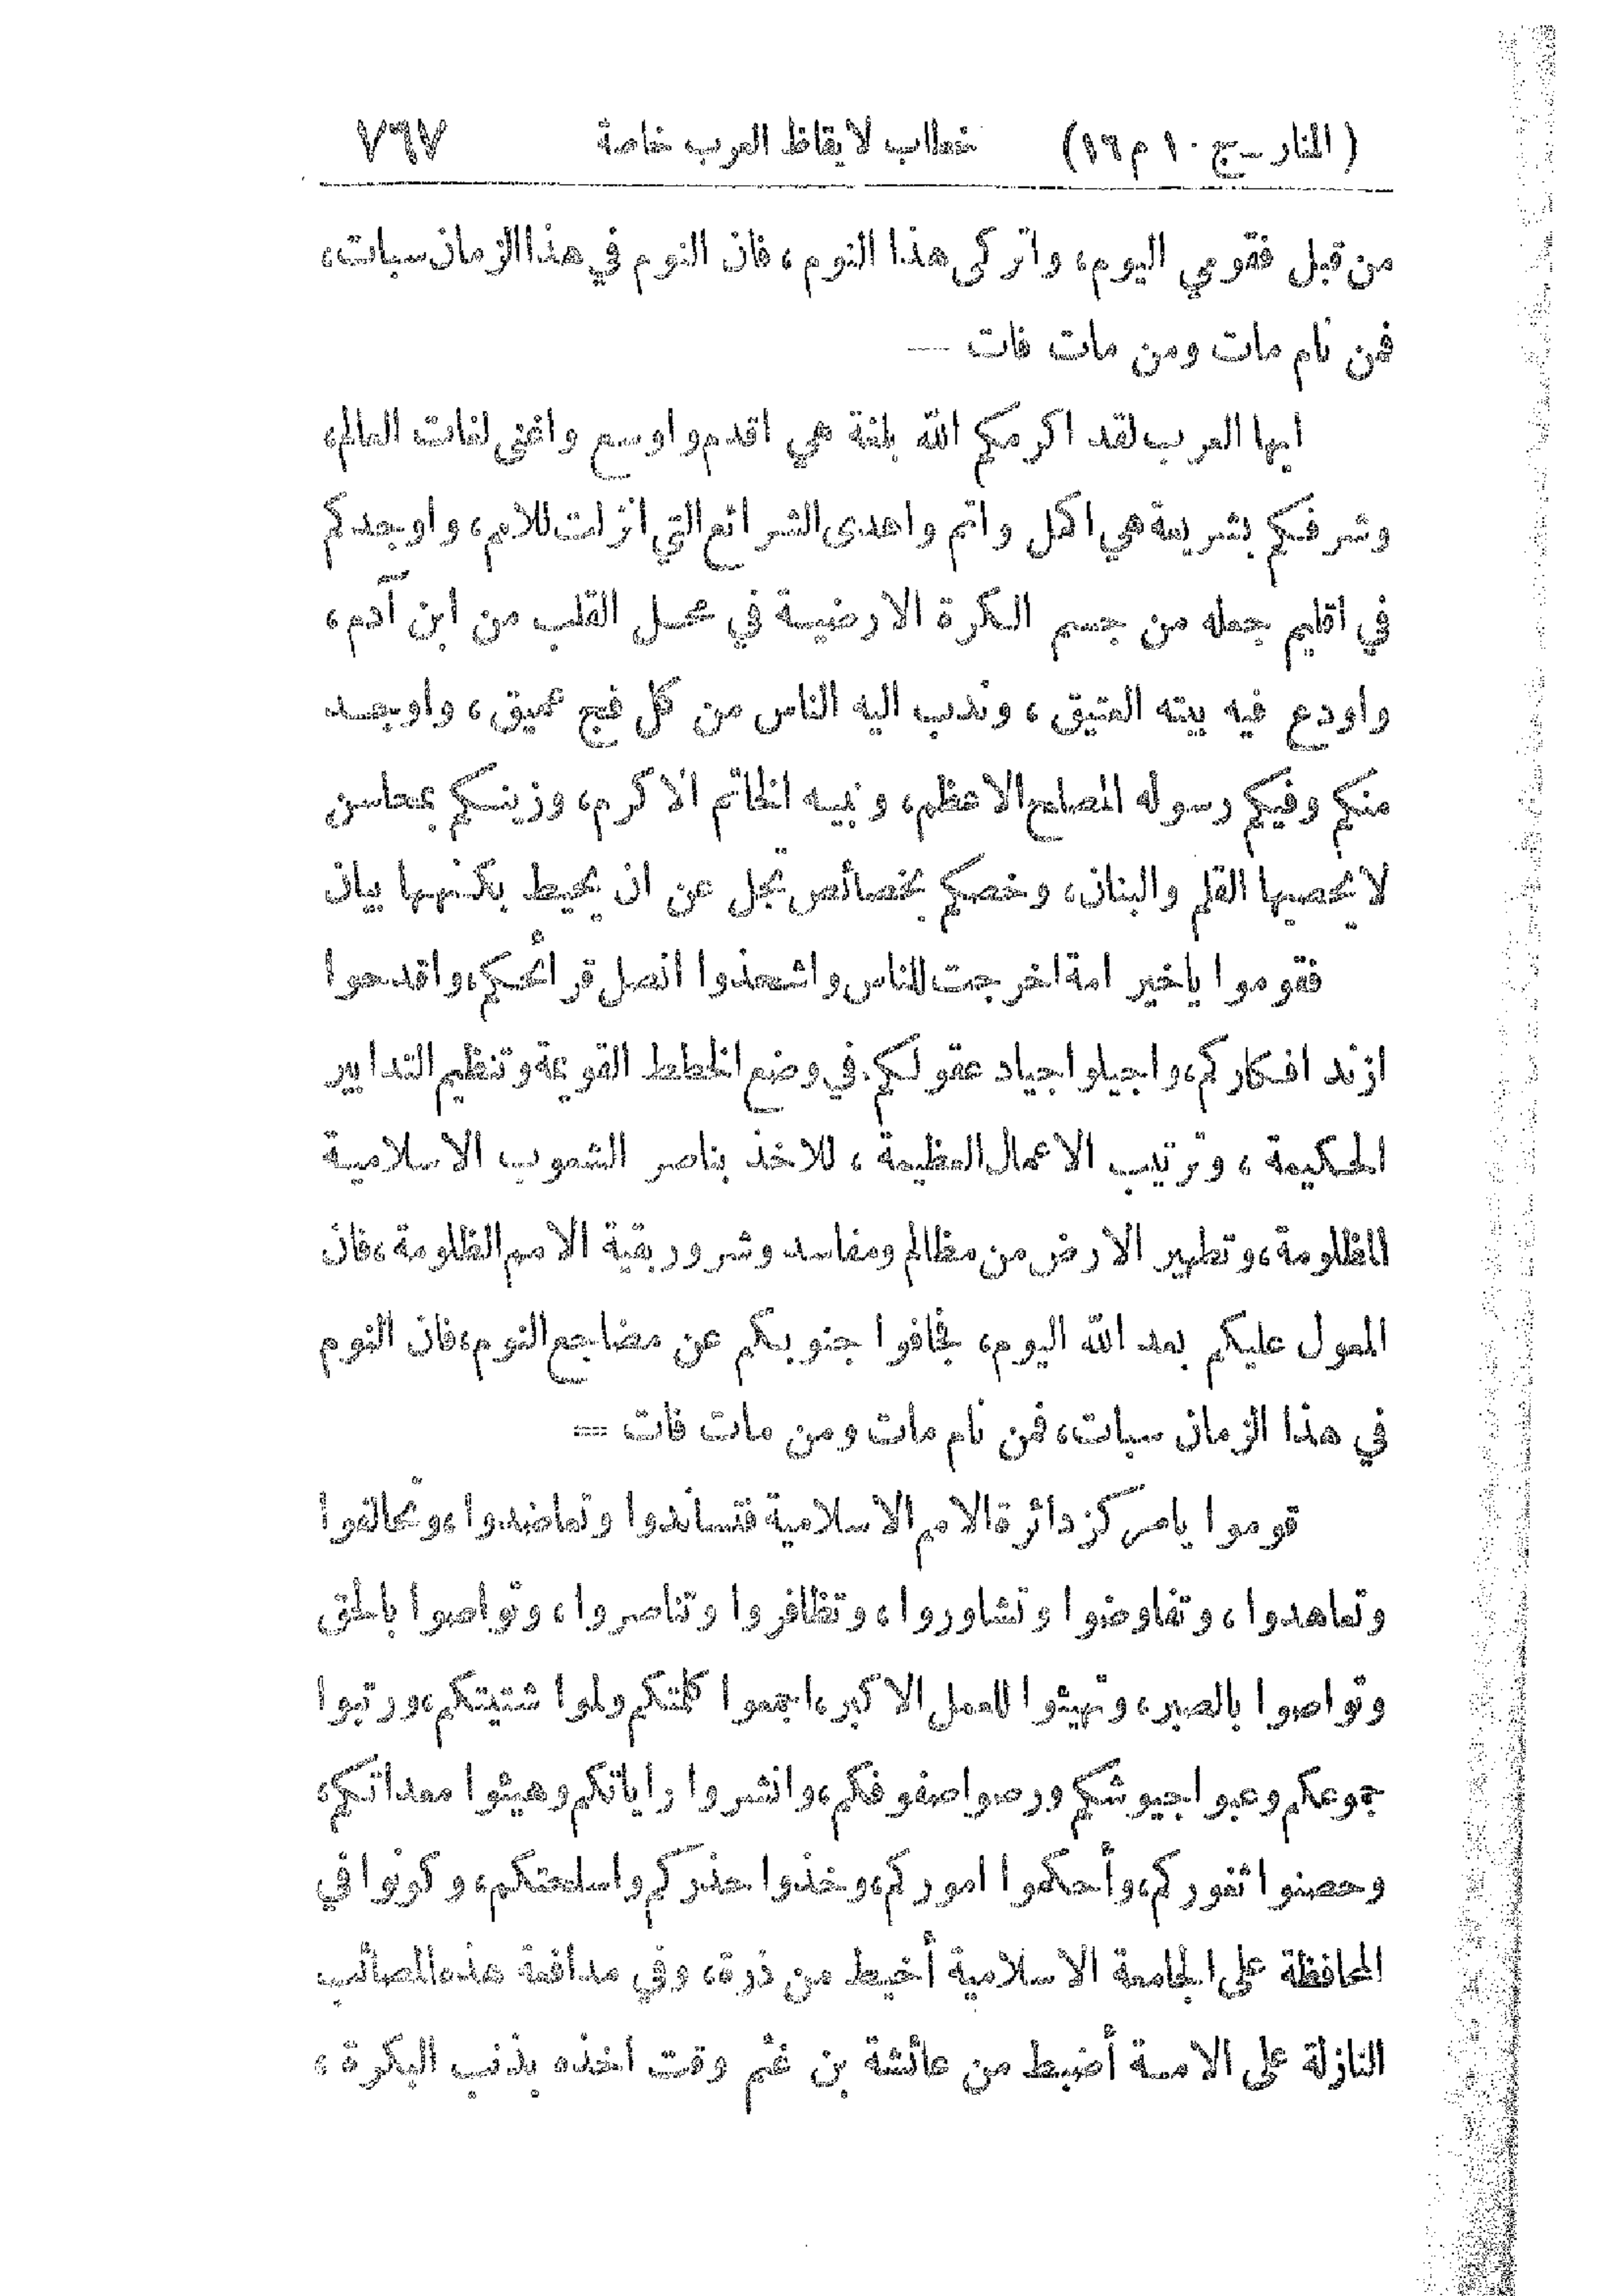 (المنار ـ ج ١٠ م ١٦) خطاب لايقاظ العرب خاصة ٧٦٧
من قبل فقومي اليوم، واتركى هذا النوم، فان النوم في هذا الزمان سبات،
فمن نام مات ومن مات فات —
ايها العرب لقد اكرمكم الله بلغة هي اقدم واوسع واغنى لغات العالم،
وشرفكم بشريعة هي اكمل واتم واهدى الشرائع التي انزلت للامم، واوجدكم
في اقليم جعله من جسم الكرة الارضية في محل القلب من ابن آدم،
واودع فيه بيته العتيق، وندب اليه الناس من كل فج عميق، واوجد
منكم وفيكم رسوله المصلح الاعظم، ونبيه الخاتم الاكرم، وزينكم بمحاسن
لا يحصيها القلم والبنان، وخصكم بخصائص تجل عن ان يحيط بكنهها بيان
فقوموا ياخير امة اخرجت للناس واشحذوا انصل قرائحكم، واقدحوا
ازند افكاركم، واجيلوا جياد عقولكم. في وضع الخطط القويمة وتنظيم التدابير
الحكيمة، وترتيب الاعمال العظيمة، للاخذ بناصر الشعوب الاسلامية
المظلومة، وتطهير الارض من مظالم ومفاسد وشرور بقية الامم الظلومة، فان
المعول عليكم بعد الله اليوم، تجافوا جنوبكم عن مضاجع النوم، فان النوم
في هذا الزمان سبات، فمن نام مات ومن مات فات =
قوموا يامركز دائرة الامم الاسلامية فتساندوا وتعاضدوا، وتحالفوا
وتعاهدوا، وتفاوضوا وتشاوروا، وتظافروا وتناصروا، وتواصوا بالحق
وتواصوا بالصبر، وتهيئوا للعمل الاكبر، اجمعوا كلمتكم ولموا شتيتكم، ورتبوا
جموعكم وعبوا جيوشكم ورصوا صفوفكم، وانشروا راياتكم وهيئوا معداتكم،
وحصنوا ثغوركم، وأحكموا اموركم، وخذوا حذركم واسلحتكم، وكونوا في
المحافظة على الجامعة الاسلامية أحيط من ذرة، وفي مدافعة هذه المصائب
النازلة على الامة أضبط من عائشة بن غثم وقت اخذه بذنب البكرة،